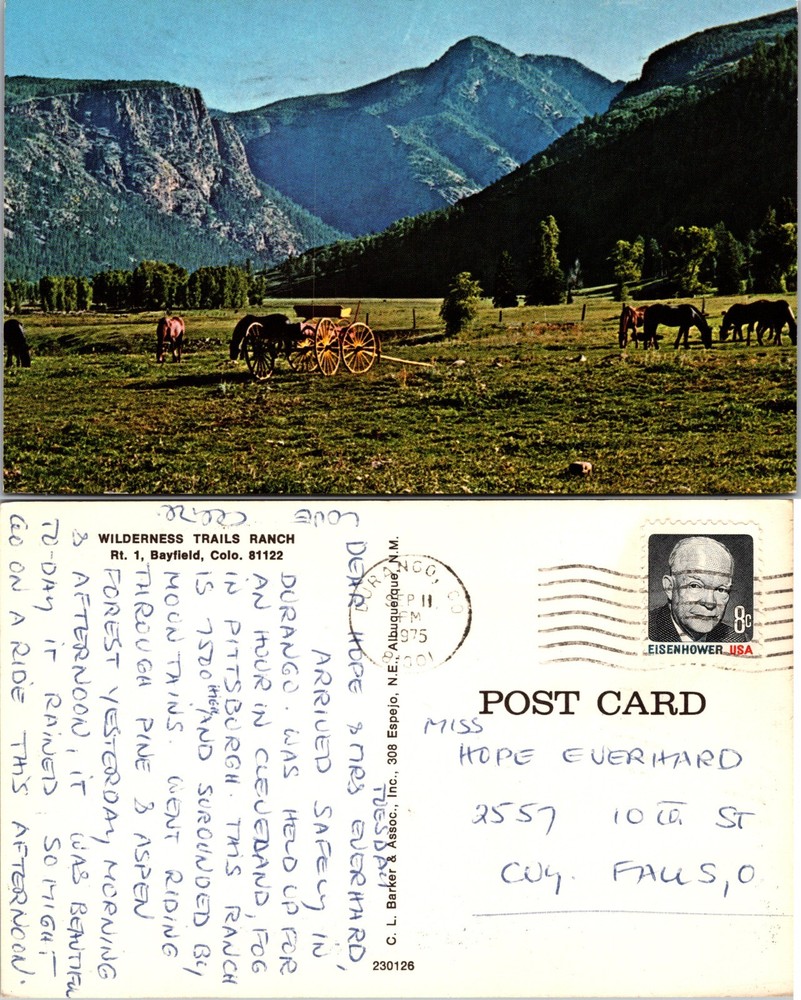 WILDERNESS TRAILS RANCH
Rt. 1, Bayfield, Colo. 81122
TUESDAY
DEAR HOPE & MRS EVERHARD,
ARRIVED SAFELY IN
DURANGO. WAS HELD UP FOR
AN HOUR IN CLEVELAND, FOG
IN PITTSBURGH. THIS RANCH
IS 7500 HIGH AND SUROUNDED BY
MOUNTAINS. WENT RIDING
THROUGH PINE & ASPEN
FOREST YESTERDAY MORNING
& AFTERNOON, IT WAS BEAUTIFUL
TO-DAY IT RAINED SO MIGHT
GO ON A RIDE THIS AFTERNOON.
LOVE
C. L. Barker & Assoc., Inc., 308 Espejo, N.E., Albuquerque, N.M.
230126
DURANGO, CO
SEP 11
PM
1975
8c
EISENHOWER USA
POST CARD
MISS
HOPE EVERHARD
2557 10th ST
CUY. FALLS, O